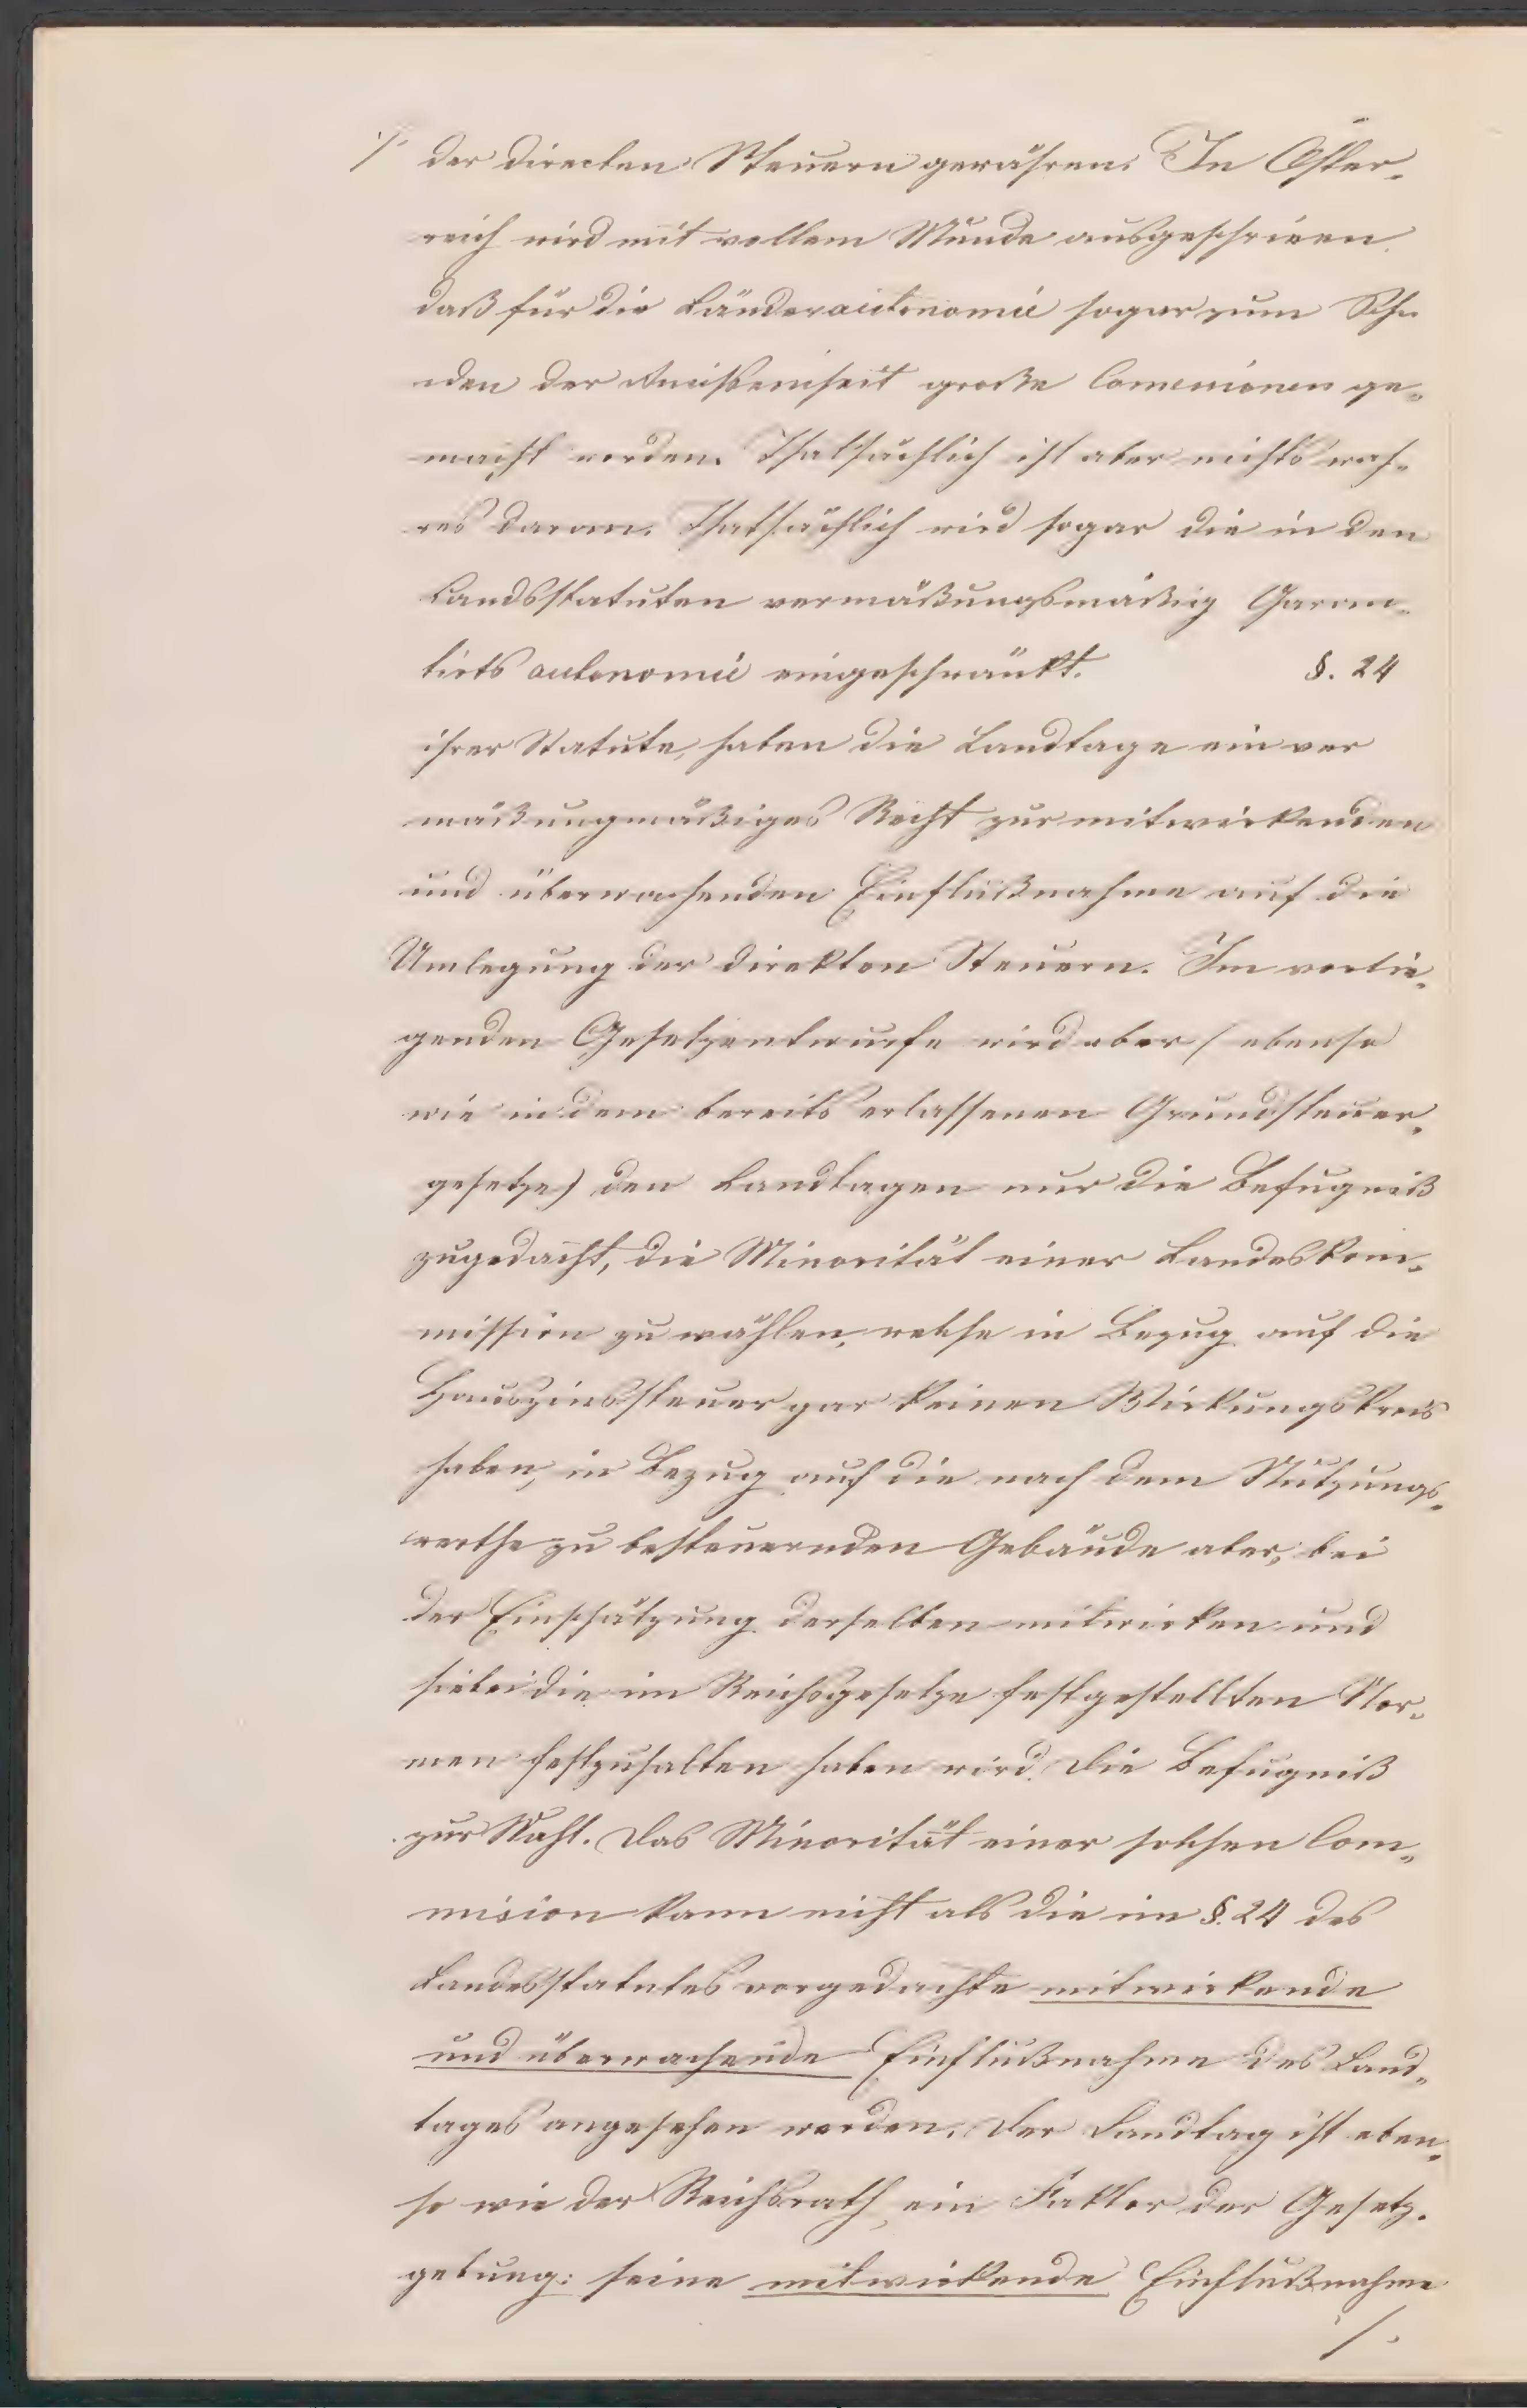 ./. der directen Steuern gewähren. In Öster-
reich wird mit vollem Munde ausgeschrieen
daß für die Länderautonomie sogar zum Scha
den der Reichseinheit große Concessionen ge-
macht werden. Thatsächlich ist aber nichts wah-
res daran. Thatsächlich wird sogar die in den
Landsstatuten vermäßungsmäßig Garan-
tirts autonomie eingeschränkt. §. 24
ihrer Statute, haben die Landtage ein ver
mäßungmäßiges Recht zur mitwirkenden
und überwachenden Einflußnahme auf die
Umlegung der direkten Steuern. Im vorlie-
genden Gesetzentwurfe wird aber (ebenso
wie in dem bereits erlassenen Grundsteuer-
gesetze) den Landtagen nur die Befugniß
zugedacht, die Minorität einer Landeskom-
mission zu wählen, welche in Bezug auf die
Hauszinssteuer gar keinen Wirkungskreis
haben, in Bezug auf die nach dem Nutzungs-
werthe zu besteuernden Gebäude aber, bei
der Einschätzung derselben mitwirken und
hiebei die im Reichsgesetze festgestellten Nor-
men festzuhalten haben wird. Die Befugniß
zur Wahl. Das Minorität einer solchen Com-
mision kann nicht als die im §. 24 des
Landesstatutes vorgedachte mitwirkende
und überwachende Einflußnahme des Land-
tages angesehen werden. Der Landtag ist eben-
so wie der Reichsrath, ein Faktor der Gesetz-
gebung: seine mitwirkende Einflußnahme
/.